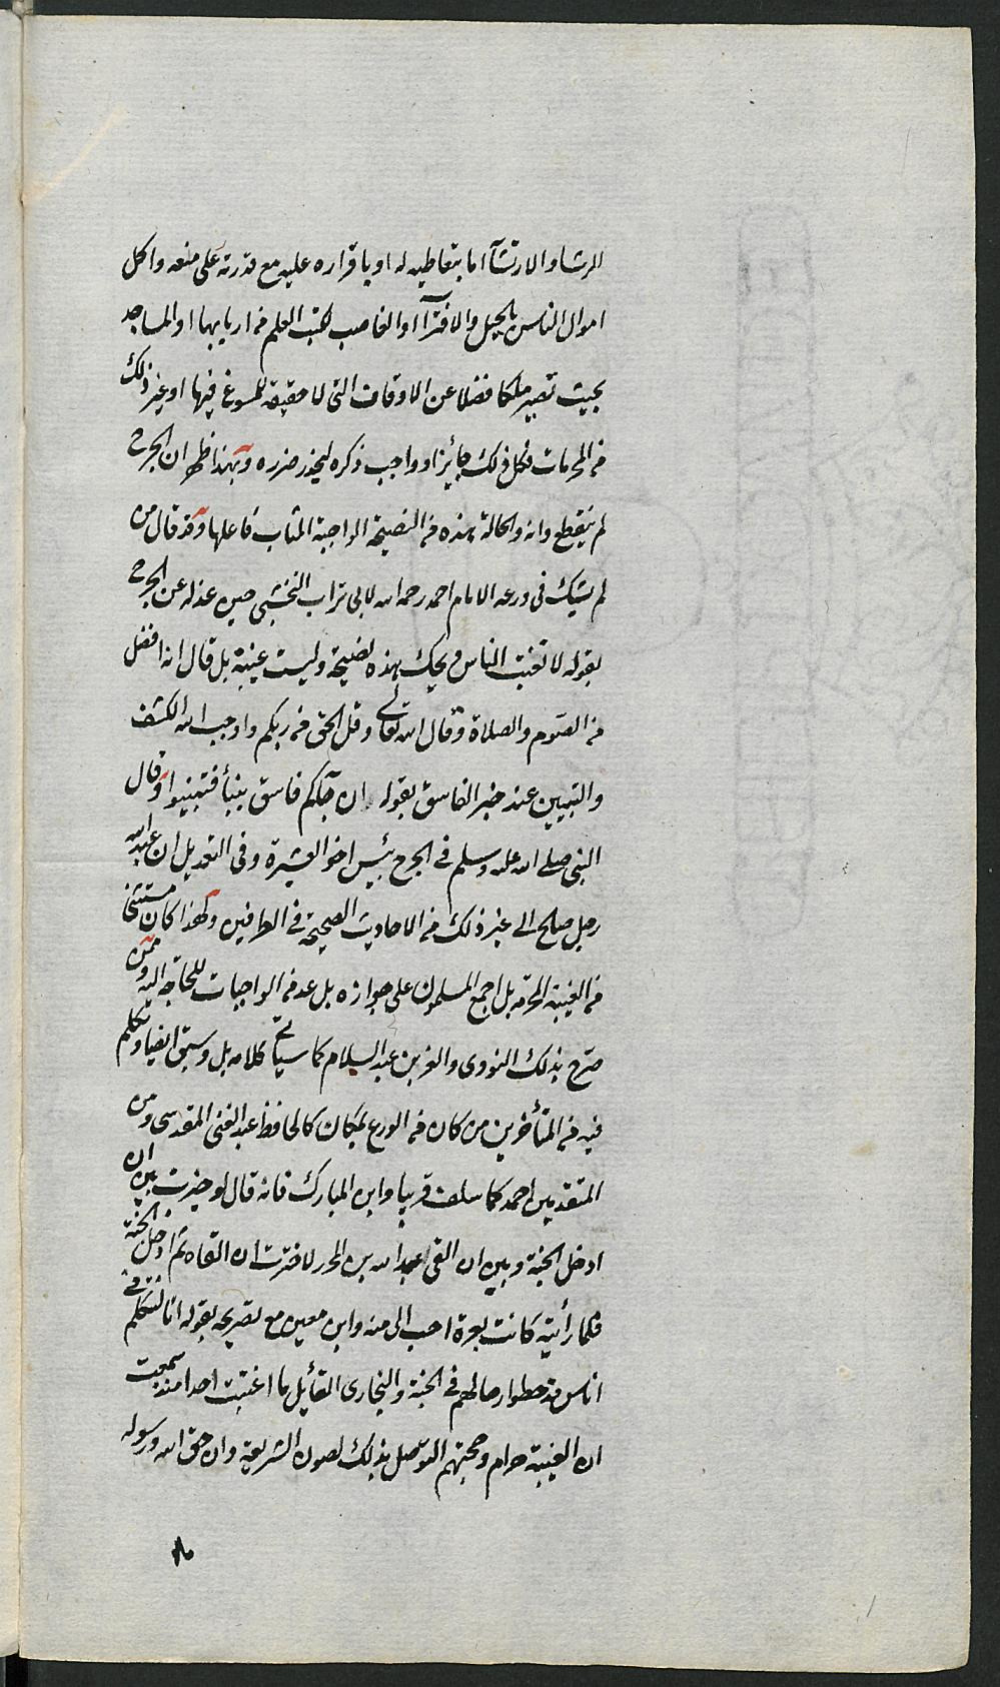 للرشا والارتشآ اما بتعاطيه له او باقراره عليه مع قدرته على منعه واكل
اموال الناس بالحيل والافترآ او الغاصب لكتب العلم من اربابها او المساجد
بحيث تصير ملكا فضلا عن الاوقاف التى لا حقيقة للمسوغ فيها او غير ذلك
من المحرمات فكل ذلك جائز او واجب ذكره ليحذر ضرره وبهذا ظهر ان الجرح
لم ينقطع وانه والحالة هذه من النصيحة الواجبة المثاب فاعلها وقد قال من
لم يشك فى ورعه الامام احمد رحمه الله لابى تراب النخشبى حين عذله عن الجرح
بقوله لا تغتب الناس ويحك هذه نصيحة وليست غيبة بل قال انه افضل
من الصوم والصلاة وقال الله تعالى وقل الحق من ربكم واوجب الله الكشف
والتبيين عند خبر الفاسق بقوله ان جآءكم فاسق بنبأ فتبينوا وقال
النبى صلى الله عليه وسلم فى الجرح بئيس اخو العشيرة وفى التعديل ان عبد الله
رجل صالح الى غير ذلك من الاحاديث الصحيحة فى الطرفين ولهذا كان مستثنى
من الغيبة المحرمة بل اجمع المسلمون على جوازه بل عد من الواجبات للحاجة اليه وممن
صرح بذلك النووى والعز بن عبد السلام كما سيأتى كلامه بل وسبق ايضا وتكلم
فيه من المتأخرين من كان من الورع بمكان كالحافظ عبد الغنى المقدسى ومن
المتقدمين احمد كما سلف قريبا وابن المبارك فانه قال لو خيرت بين ان
ادخل الجنة وبين ان القى عبد الله بن المحرر لاخترت ان القاه ثم ادخل الجنة
فلما رأيته كانت بعرة احب الى منه وابن معين مع تصريحه بقوله انا لنتكلم فى
اناس قد حطوا رحالهم فى الجنة والبخارى القائل ما اغتبت احدا منذ سمعت
ان الغيبة حرام وحجتهم التوصل بذلك لصون الشريعة وان حق الله ورسوله